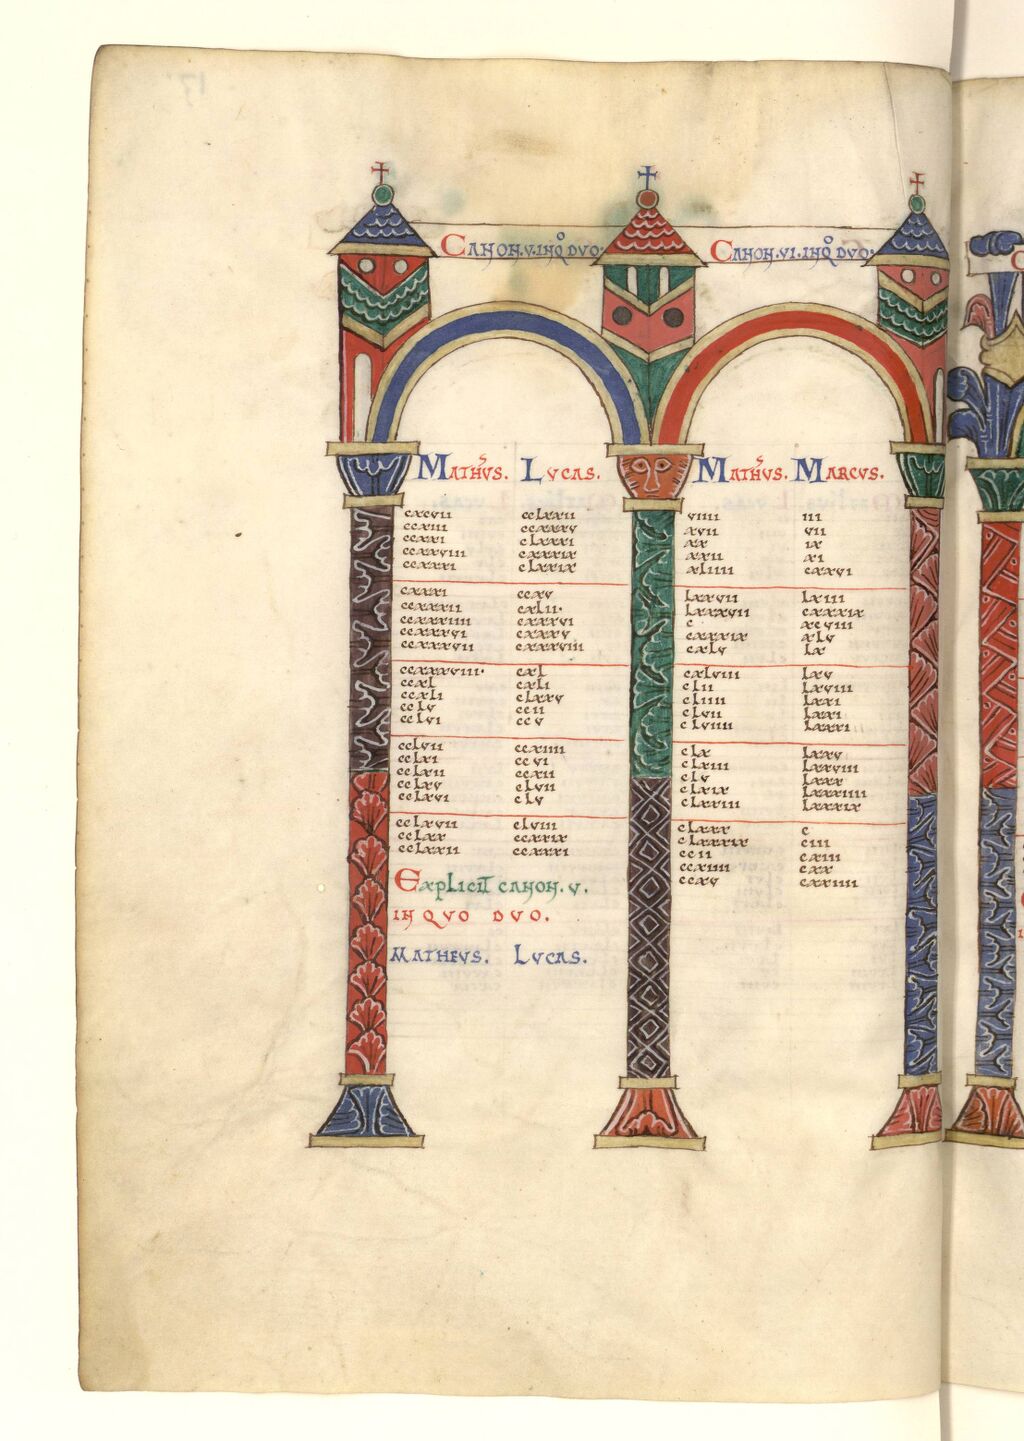 CANON.V.INQO DVO.
CANON.VI.INQO DVO.
MATHVS. LVCAS.
MATHVS. MARCVS.
cxcvii cclxxii
ccxiii ccxxxv
ccxxi clxxxi
ccxxviii cxxxix
ccxxxi clxxix
cxxxi ccxv
ccxxxii cxlii.
ccxxxiiii cxxxvi
ccxxxvi cxxxv
ccxxxvii cxxxviii
ccxxxviii. cxl
ccxl cxli
ccxli clxxv
cclv ccii
cclvi ccv
cclvii ccxiiii
cclxi ccvi
cclxii ccxii
cclxv clvii
cclxvi clv
cclxvii clviii
cclxx ccxxix
cclxxii ccxxxi
Explicit canon.v.
IN QVO DVO.
MATHEVS. LVCAS.
viiii iii
xvii vii
xx ix
xxii xi
xliiii cxxvi
lxxvii lxiii
lxxxvii cxxxix
c xcviii
cxxxix xlv
cxlv lx
cxlviii lxv
clii lxviii
cliiii lxxi
clvii lxxi
clviiii lxxxi
clx lxxv
clxiii lxxviii
clv lxxx
clxix lxxxiiii
clxxiii lxxxix
clxxx c
clxxxix ciii
ccii cxiii
ccxiiii cxx
ccxv cxxiiii